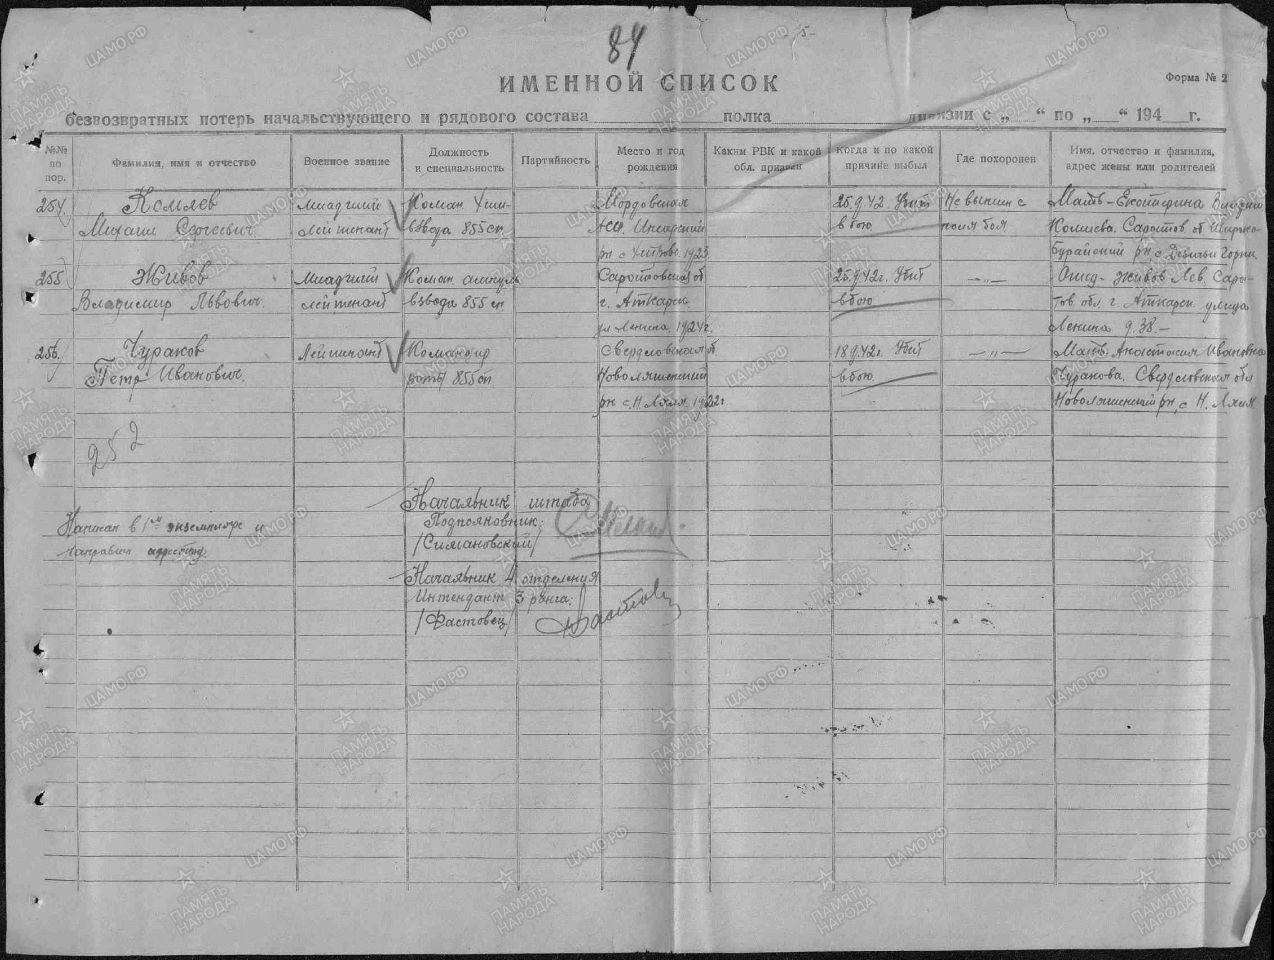 84
ИМЕННОЙ СПИСОК
Форма № 2
безвозвратных потерь начальствующего и рядового состава полка дивизии с „ “ по „ “ 194 г.
№№ по пор.
Фамилия, имя и отчество
Военное звание
Должность и специальность
Партийность
Место и год рождения
Каким РВК и какой обл. призван
Когда и по какой причине выбыл
Где похоронен
Имя, отчество и фамилия, адрес жены или родителей
254. Комлев Младший Коман. Мордовская 25.9.42. Убит Не вынисе с Мать - Екатерина
Михаил Сергеевич лейтенант взвода 855 сп АССР Инсарский в бою поля боя Комлева. Саратов. об
рн с 1923
255 Живов Младший Коман Саратовская об 25.9.42г. Убит — „ — Отец - Живов Лев. Сара-
Владимир Львович. лейтенант взвода 855 сп г. Аткарск в бою тов обл г. Аткарск улица
ул Ленина 1924г. Ленина д. 38. —
256. Чураков Лейтенант Командир Свердловская об 18.9.42г. Убит — „ — Мать. Анастасия Ивановна
Петр Иванович. роты 855 сп Новолялинский в бою Чуракова. Свердловская обл
рн с. Н. Ляля 1922г Новолялинский рн, с Н. Ляля
252
Начальник штаба
Подполковник:
/Симановский/
Написан в 1ом экземпляре и
направлен адресату.
Начальник 4 отделения
Интендант 3 ранга:
/Фастовец/
ПАМЯТЬ НАРОДА
ЦАМО РФ